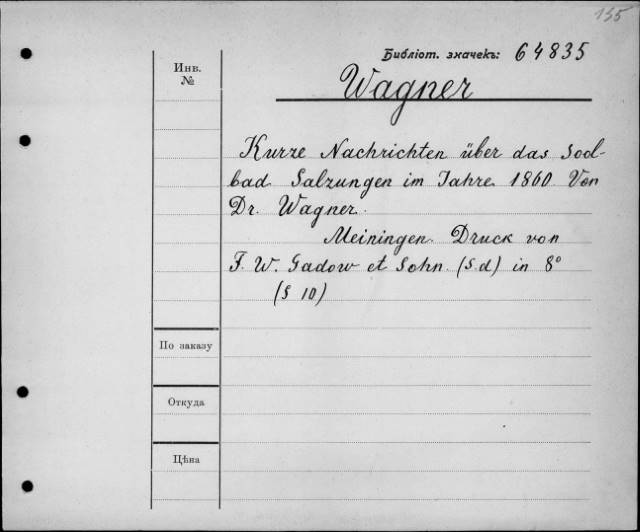 155
Библіот. значекъ: 64835
Инв.
№
Wagner
Kurze Nachrichten über das Sool-
bad Salzungen im Jahre 1860 Von
Dr. Wagner.
Meiningen. Druck von
F. W. Gadow et Sohn. (S.d) in 8°
(S 10)
По заказу
Откуда
Цѣна